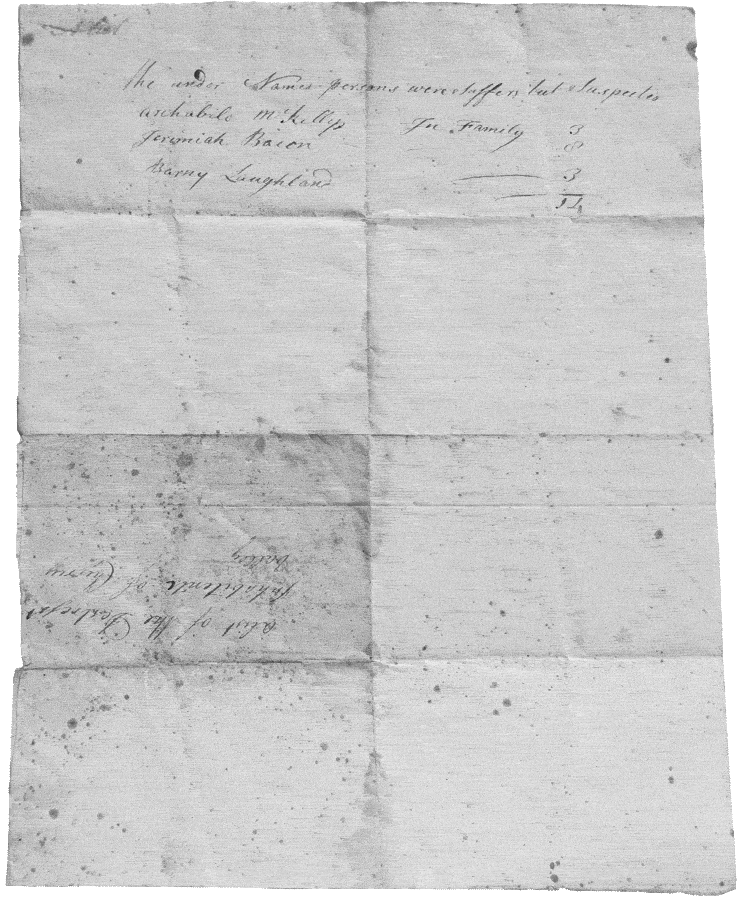 the under Names persons were Suffers but Suspected
archabile McKillip In Family 3
Jerimiah Bacon 8
Barny Laughland 3
14
a List of the Destressd
Inhabitents of Cherrey
Valley